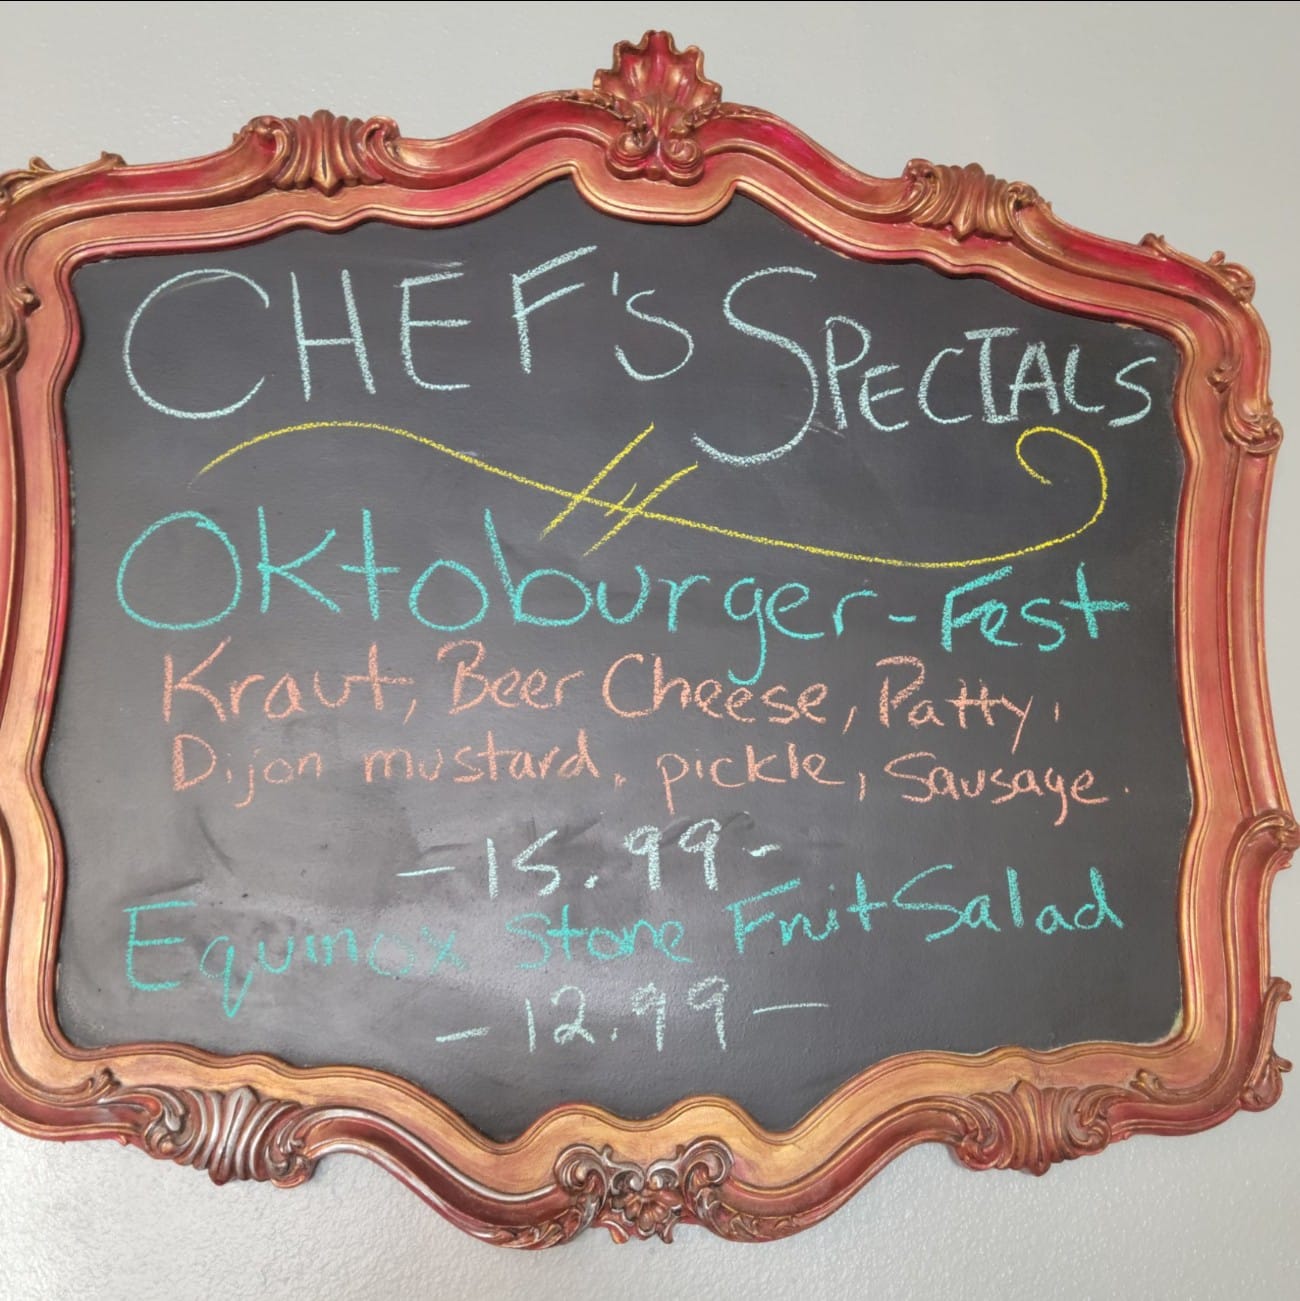 CHEF'S SPECIALS
Oktoburger-Fest
Kraut, Beer Cheese, Patty,
Dijon mustard, pickle, Sausage.
-15.99-
Equinox Stone Fruit Salad
-12.99-